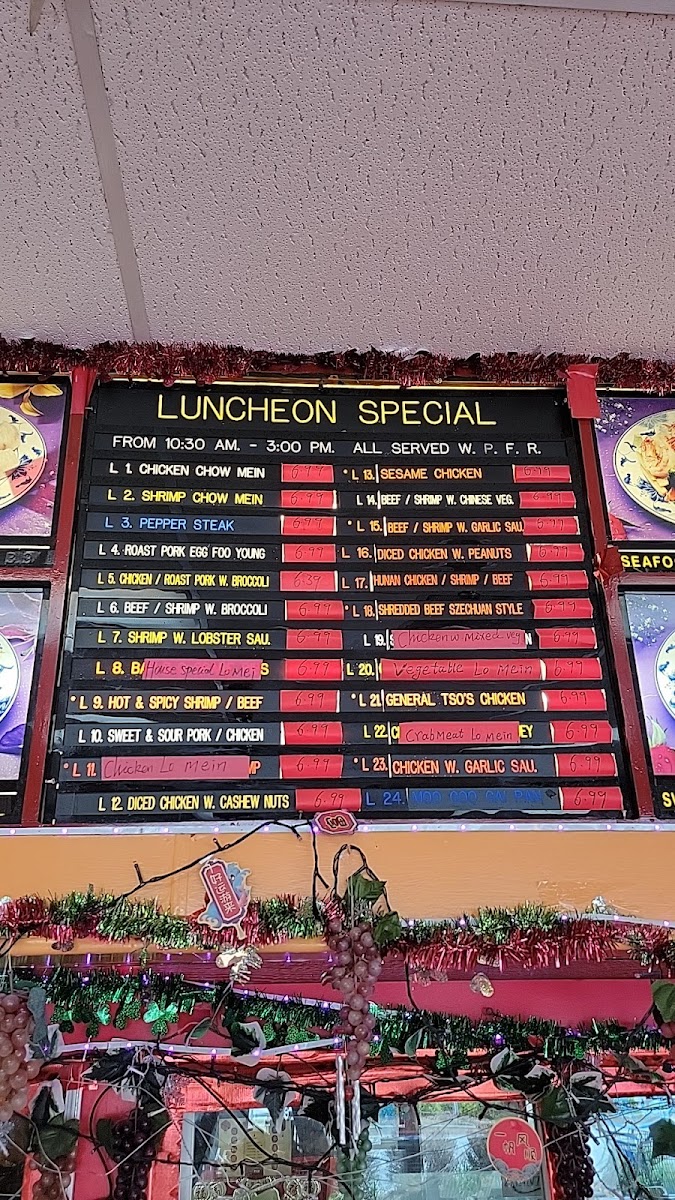 LUNCHEON SPECIAL
FROM 10:30 AM. - 3:00 PM. ALL SERVED W. P. F. R.
L 1. CHICKEN CHOW MEIN 6.99
L 2. SHRIMP CHOW MEIN 6.99
L 3. PEPPER STEAK 6.99
L 4. ROAST PORK EGG FOO YOUNG 6.99
L 5. CHICKEN / ROAST PORK W. BROCCOLI 6.39
L 6. BEEF / SHRIMP W. BROCCOLI 6.99
L 7. SHRIMP W. LOBSTER SAU. 6.99
L 8. BA House special Lo Mei S 6.99
* L 9. HOT & SPICY SHRIMP / BEEF 6.99
L 10. SWEET & SOUR PORK / CHICKEN 6.99
* L 11. Chicken Lo mein MP 6.99
L 12. DICED CHICKEN W. CASHEW NUTS 6.99
* L 13. SESAME CHICKEN 6.99
L 14. BEEF / SHRIMP W. CHINESE VEG. 6.99
* L 15. BEEF / SHRIMP W. GARLIC SAU. 6.99
L 16. DICED CHICKEN W. PEANUTS 6.99
L 17. HUNAN CHICKEN / SHRIMP / BEEF 6.99
* L 18. SHREDDED BEEF SZECHUAN STYLE 6.99
L 19. Chicken w mixed veg N 6.99
L 20. Vegetable Lo Mein 6.99
* L 21. GENERAL TSO'S CHICKEN 6.99
L 22. C Crabmeat Lo mein EY 6.99
* L 23. CHICKEN W. GARLIC SAU. 6.99
L 24. MOO GOO GAI PAN 6.99
SEAFO